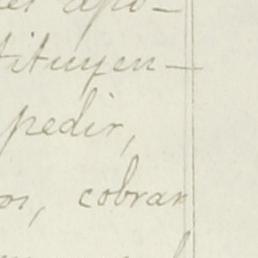 apo-
tituyen-
pedir,
os, cobrar